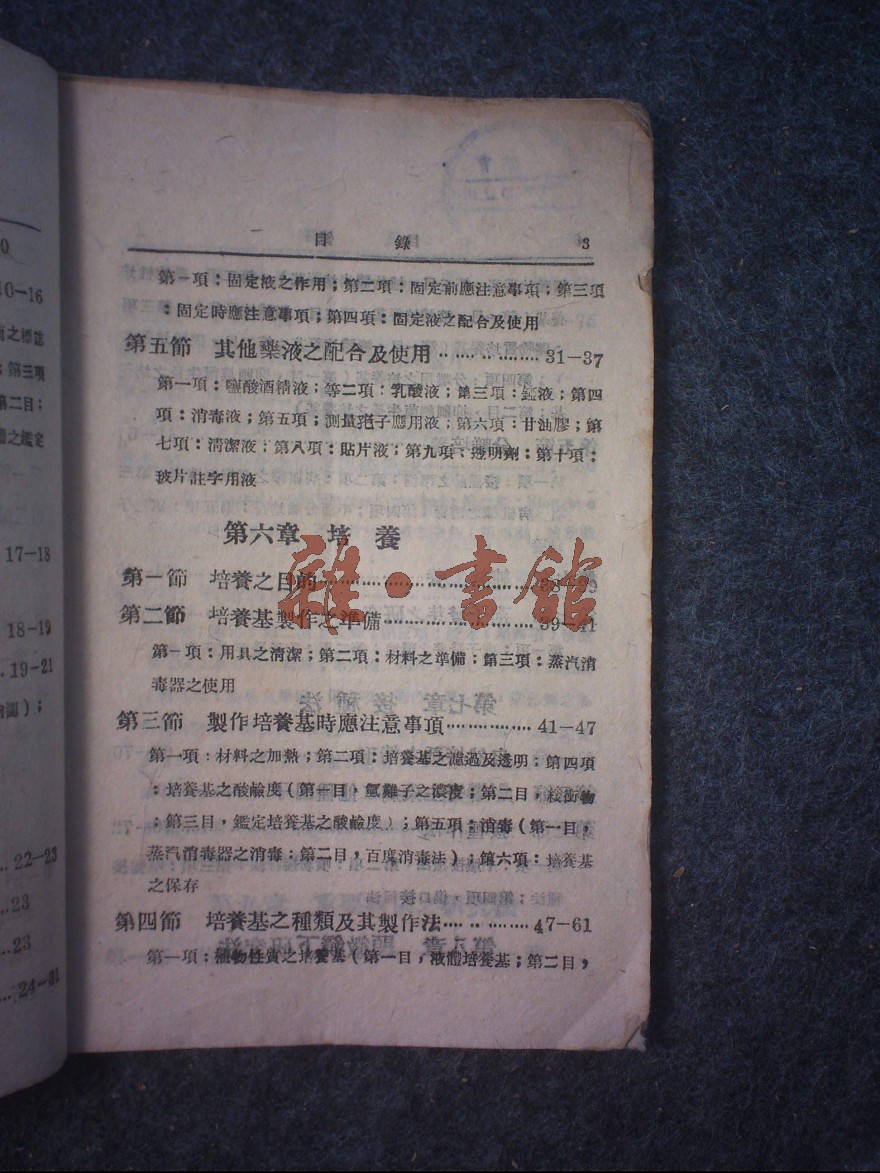 0
10-16
之標誌
第三項
第二目;
之鑑定
17-18
18-19
..19-21
圖);
...22-23
...23
...23
...24-31
目 錄 3
第一項:固定液之作用;第二項:固定前應注意事項;第三項
:固定時應注意事項;第四項:固定液之配合及使用
第五節 其他藥液之配合及使用 ………………31-37
第一項:鹽酸酒精液;等二項:乳酸液;第三項:錏液;第四
項:消毒液;第五項;測量孢子應用液;第六項:甘油膠;第
七項:淸潔液;第八項:貼片液;第九項:透明劑:第十項:
玻片註字用液
第六章 培 養
第一節 培養之目的
第二節 培養基製作之準備………………39-41
第一項:用具之淸潔;第二項:材料之準備;第三項:蒸汽消
毒器之使用
第三節 製作培養基時應注意事項……………41-47
第一項:材料之加熱;第二項:培養基之濾過及透明;第四項
:培養基之酸鹼度(第一目,氫離子之濃度;第二目,緩衝物
;第三目,鑑定培養基之酸鹼度);第五項:消毒(第一目,
蒸汽消毒器之消毒:第二目,百度消毒法);第六項:培養基
之保存
第四節 培養基之種類及其製作法……………47-61
第一項:植物性質之培養基(第一目,液體培養基;第二目,
雜·書館